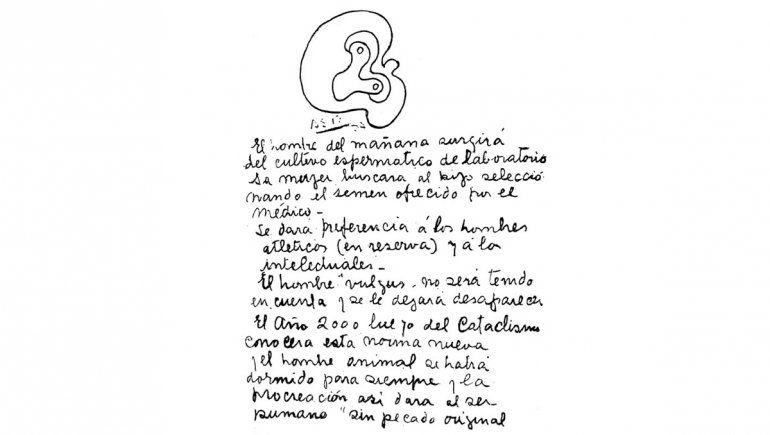 El hombre del mañana surgirá
del cultivo espermatico de laboratorio
La mujer buscara al hijo selecció
nando el semen ofrecido por el
médico -
Se dará preferencia á los hombres
atleticos (en reserva) y á la
intelectuales -
El hombre "vulgus" no será tenido
en cuenta y se le dejará desaparecer
El Año 2000 luego del Cataclismo
conocera esta norma nueva
y el hombre animal se habrá
dormido para siempre y la
procreación asi dara al ser
humano "sin pecado original